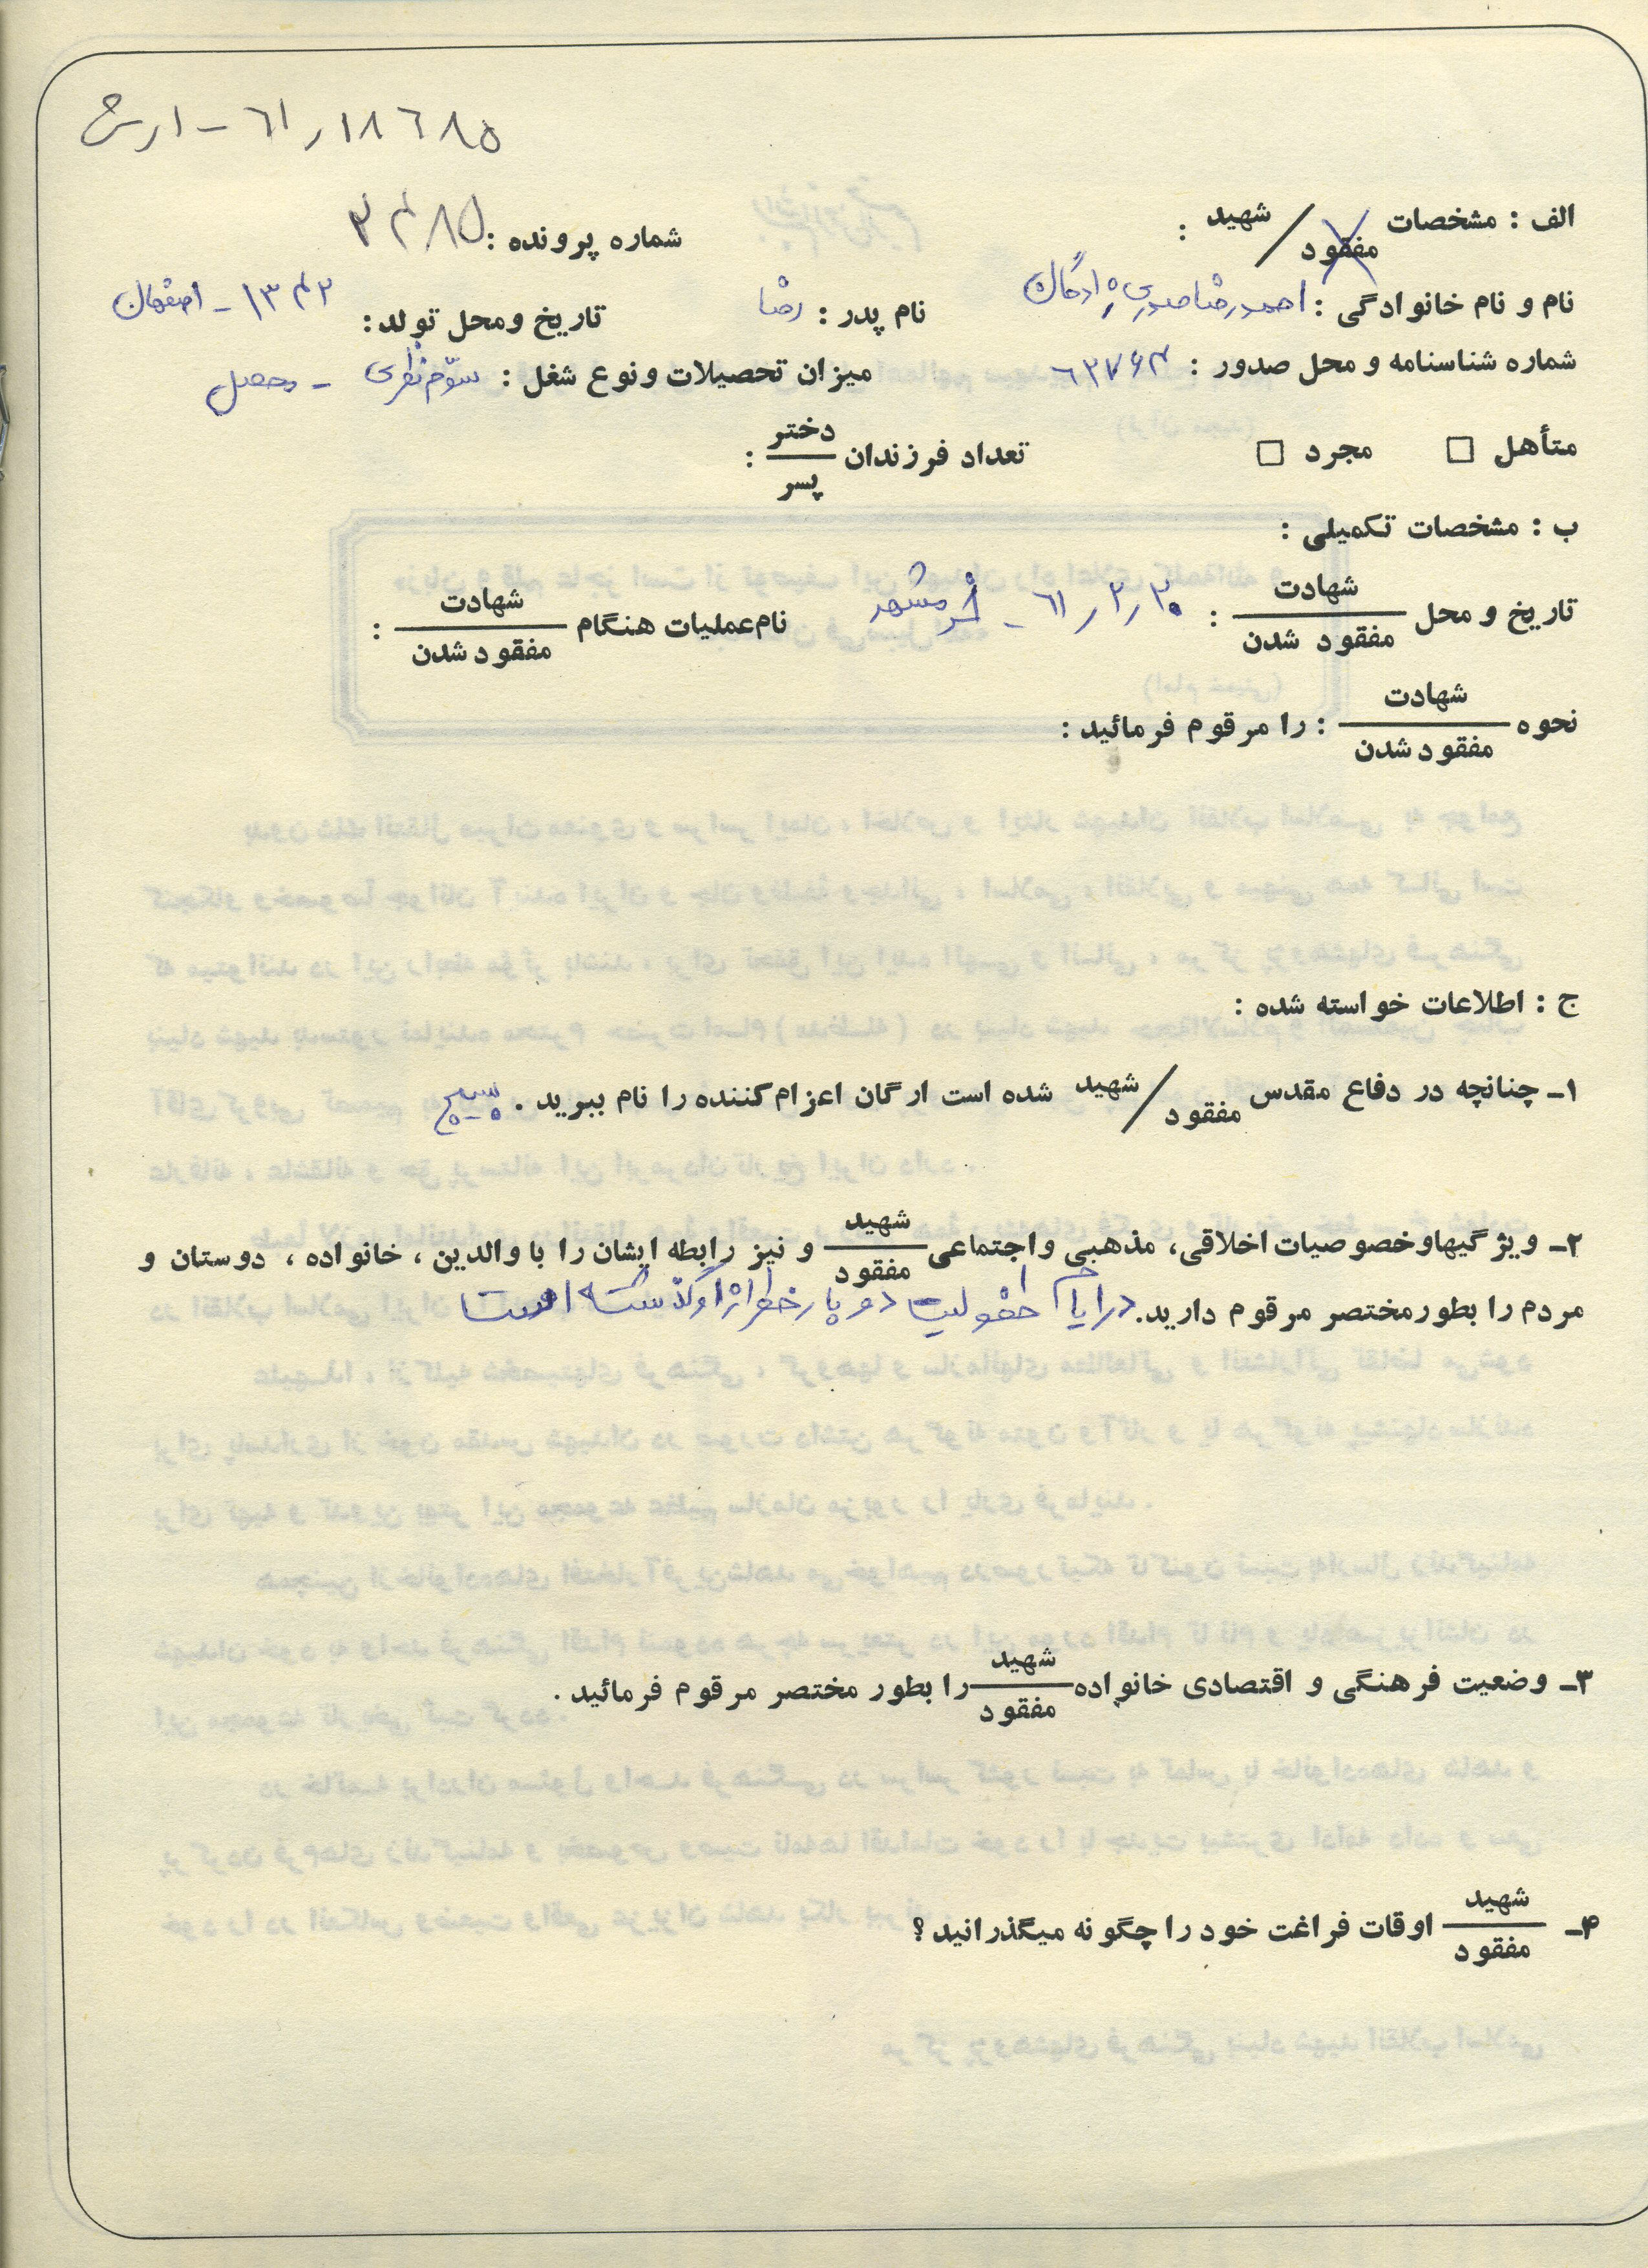 ۶۱/۱۸۶۸۵ - ارتش
الف : مشخصات شهید / مفقود :
شماره پرونده : ۳۴۸۵
نام و نام خانوادگی : احمدرضا صدری زادگان نام پدر : رضا تاریخ ومحل تولد : ۱۳۴۲ - اصفهان
شماره شناسنامه و محل صدور : ۶۳۷۶۴ میزان تحصیلات ونوع شغل : سوّم نظری - محصل
متأهل □ مجرد □ تعداد فرزندان دختر / پسر :
ب : مشخصات تکمیلی :
تاریخ و محل شهادت / مفقود شدن : ۶۱/۲/۳۰ - خرمشهر نام عملیات هنگام شهادت / مفقود شدن :
نحوه شهادت / مفقود شدن : را مرقوم فرمائید :
ج : اطلاعات خواسته شده :
۱ـ چنانچه در دفاع مقدس شهید / مفقود شده است ارگان اعزام کننده را نام ببرید . بسیج
۲ـ ویژگیهاوخصوصیات اخلاقی، مذهبی واجتماعی شهید / مفقود و نیز رابطه ایشان را با والدین ، خانواده ، دوستان و
مردم را بطورمختصر مرقوم دارید. در ایام طفولیت دو بار خطر از او گذشته است
۳ـ وضعیت فرهنگی و اقتصادی خانواده شهید / مفقود را بطور مختصر مرقوم فرمائید .
۴ـ شهید / مفقود اوقات فراغت خود را چگونه میگذرانید ؟